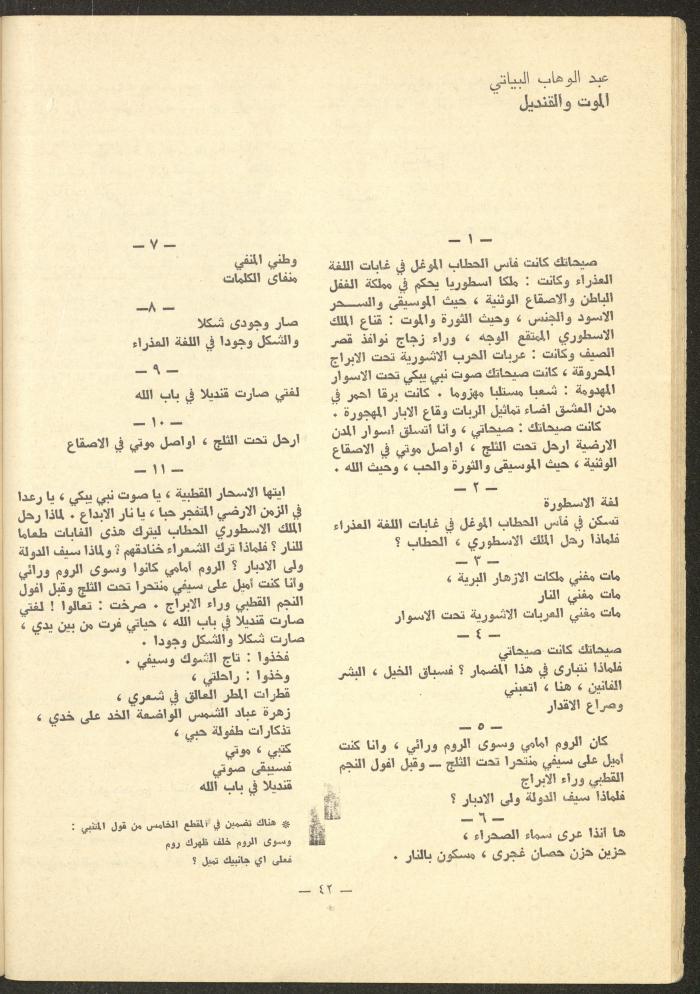 عبد الوهاب البياتي
الموت والقنديل
— ١ —
صيحاتك كانت فأس الحطاب الموغل في غابات اللغة
العذراء وكانت : ملكا اسطوريا يحكم في مملكة العقل
الباطن والاصقاع الوثنية ، حيث الموسيقى والسحر
الاسود والجنس ، وحيث الثورة والموت : قناع الملك
الاسطوري الممتقع الوجه ، وراء زجاج نوافذ قصر
الصيف وكانت : عربات الحرب الاشورية تحت الابراج
المحروقة ، كانت صيحاتك صوت نبي يبكي تحت الاسوار
المهدومة : شعبا مستلبا مهزوما . كانت برقا احمر في
مدن العشق اضاء تماثيل الربات وقاع الابار المهجورة .
كانت صيحاتك : صيحاتي ، وانا اتسلق اسوار المدن
الارضية ارحل تحت الثلج ، اواصل موتي في الاصقاع
الوثنية ، حيث الموسيقى والثورة والحب ، وحيث الله .
— ٢ —
لغة الاسطورة
تسكن في فأس الحطاب الموغل في غابات اللغة العذراء
فلماذا رحل الملك الاسطوري ، الحطاب ؟
— ٣ —
مات مغني ملكات الازهار البرية ،
مات مغني النار
مات مغني العربات الاشورية تحت الاسوار
— ٤ —
صيحاتك كانت صيحاتي
فلماذا نتبارى في هذا المضمار ؟ فسباق الخيل ، البشر
الفانين ، هنا ، اتعبني
وصراع الاقدار
— ٥ —
كان الروم امامي وسوى الروم ورائي ، وانا كنت
اميل على سيفي منتحرا تحت الثلج — وقبل افول النجم
القطبي وراء الابراج
فلماذا سيف الدولة ولى الادبار ؟
— ٦ —
ها انذا عرى سماء الصحراء ،
حزين حزن حصان غجرى ، مسكون بالنار .
— ٧ —
وطني المنفي
منفاى الكلمات
— ٨—
صار وجودى شكلا
والشكل وجودا في اللغة العذراء
— ٩ —
لغتي صارت قنديلا في باب الله
— ١٠ —
ارحل تحت الثلج ، اواصل موتي في الاصقاع
— ١١ —
ايتها الاسحار القطبية ، يا صوت نبي يبكي ، يا رعدا
في الزمن الارضي المتفجر حبا ، يا نار الابداع . لماذا رحل
الملك الاسطوري الحطاب ليترك هذى الغابات طعاما
للنار ؟ فلماذا ترك الشعراء خنادقهم ؟ ولماذا سيف الدولة
ولى الادبار ؟ الروم أمامي كانوا وسوى الروم ورائي
وانا كنت أميل على سيفي منتحرا تحت الثلج وقبل افول
النجم القطبي وراء الابراج . صرخت : تعالوا ! لغتي
صارت قنديلا في باب الله ، حياتي فرت من بين يدي ،
صارت شكلا والشكل وجودا .
فخذوا : تاج الشوك وسيفي .
وخذوا : راحلتي ،
قطرات المطر العالق في شعري ،
زهرة عباد الشمس الواضعة الخد على خدي ،
تذكارات طفولة حبي ،
كتبي ، موتي
فسيبقى صوتي
قنديلا في باب الله
* هناك تضمين في المقطع الخامس من قول المتنبي :
وسوى الروم خلف ظهرك روم
فعلى اي جانبيك تميل ؟
— ٤٢ —